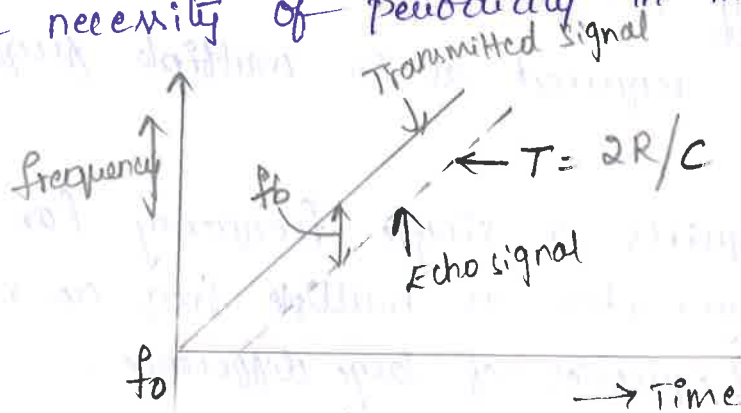 necessity of periodicity in
Transmitted signal
frequency
fb
T = 2R/C
Echo signal
f0
→ Time